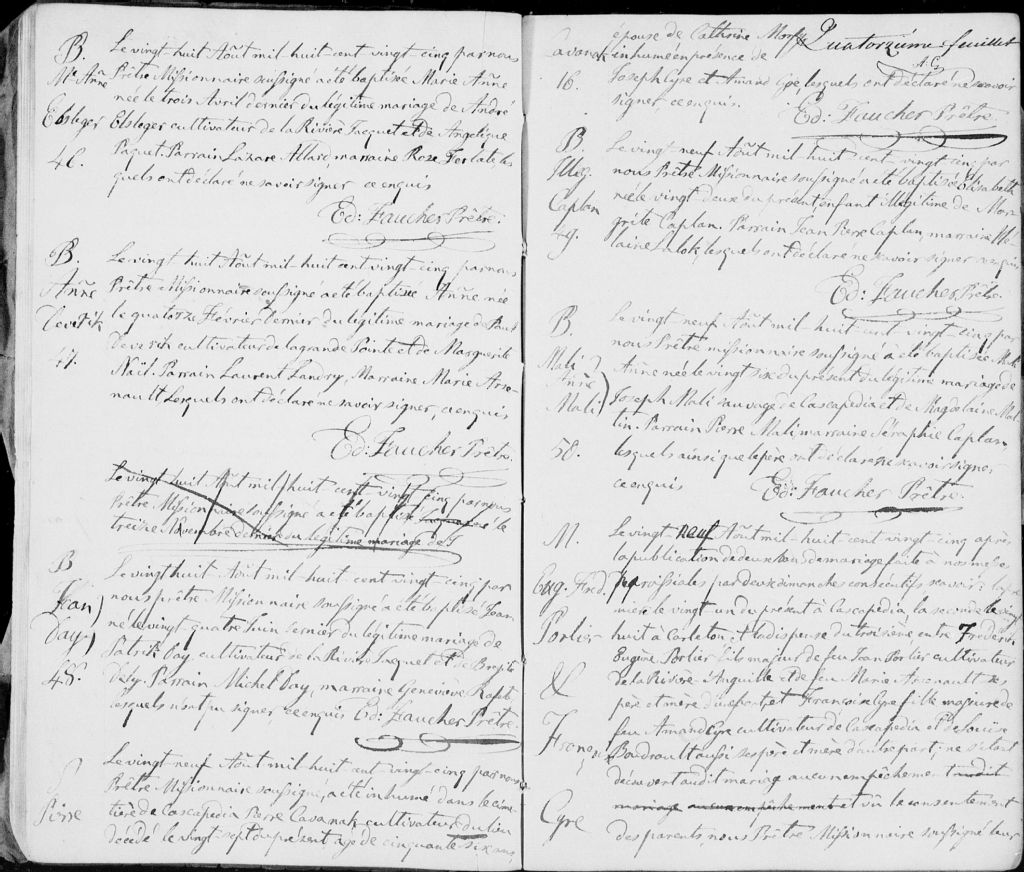 B. Le vingt-huit Aôut mil-huit-cent vingt-cinq par nous
Mie Anne Prêtre Missionnaire soussigné a été baptisée Marie Anne
née le trois Avril dernier du légitime mariage de André
Elsleger Elsleger cultivateur de la Rivière Jacquet et de Angelique
46. Paquet. Parrain Lazare Allard, marraine Roze Ferlate les
quels ont déclaré ne savoir signer ce enquis
Ed: Faucher Prêtre.
B. Le vingt huit Aôut mil-huit cent vingt-cinq par nous
Anne Prêtre Missionnaire soussigné a été baptisée Anne née
le quatorze Février dernier du légitime mariage de Paul
cultivateur de la grande Pointe et de Marguerite
47. Noël. Parrain Laurent Landry, Marraine Marie Arse-
nault Lesquels ont déclaré ne savoir signer, ce enquis
Ed: Faucher Prêtre.
Le vingt huit Aôut mil huit cent vingt cinq par nous
Prêtre Missionnaire soussigné a été baptisé le
treize Novembre dernier du légitime mariage de
B Le vingt huit Aôut mil-huit-cent vingt-cinq par
Jean) nous prêtre Missionnaire soussigné a été baptisé Jean
né le vingt quatre Juin dernier du légitime mariage de
Day) Patrik Day, cultivateur de la Rivière Jacquet et de Brigite
48. Parrain Michel Day, marraine Geneviève
lesquels n'ont pu signer, ce enquis Ed: Faucher Prêtre.
S Le vingt-neuf Aôut mil-huit-cent-vingt-cinq par nous
Prêtre Missionnaire soussigné, a été inhumé dans le cime-
Pierre tière de Cascapedia Pierre Cavanak cultivateur du lieu
décédé le vingt sept du présent agé de cinquante six ans,
épouse de Cathrine Quatorzième feuillet
Cavanak inhumé en présence de
16. Joseph Cyre et Amand Cyre lesquels ont déclaré ne savoir
signer ce enquis.
Ed: Faucher Prêtre.
B. Le vingt neuf Aôut mil-huit cent vingt cinq par
Illeg. nous Prêtre Missionnaire soussigné a été baptisée Elisabeth
née le vingt-deux du présent enfant illégitime de Mar-
Caplan grite Caplan. Parrain Jean Pierre Caplan, marraine
49. lesquels ont déclaré ne savoir signer ce enquis
Ed: Faucher Prêtre.
B. Le vingt neuf Aôut mil-huit-cent vingt-cinq par
nous Prêtre missionnaire soussigné a été baptisée
Mali Anne née le vingt six du présent du légitime mariage de
Anne
Mali) Joseph Mali sauvage de Cascapedia et de Magdelaine
Parrain Pierre Mali, marraine Séraphie Caplan
50. lesquels ainsi que le père ont déclaré ne savoir signer
ce enquis Ed: Faucher Prêtre.
M. Le vingt-neuf Aôut mil-huit-cent-vingt-cinq après
la publication de deux bans de mariage faite à nos messes
Eug. Fred. paroissiales par deux dimanches consécutifs savoir:
le vingt un du présent à Cascapedia la seconde le vingt
Portier huit à Carleton, et la dispense du troisième entre Frederic
Eugène Portier fils majeur de feu Jean Portier cultivateur
& de la Rivière à l'anguille et de feu Marie Arsenault ses
père et mère d'une part, et Françoise Cyre fille majeure de
feu Amand Cyre cultivateur de Cascapedia et de Louise
Franç. Boudrault aussi ses père et mère d'autre part; ne s'étant
découvert au dit mariage aucun empêchement au dit
mariage aucun empêchement et vû le consentement
Cyre des parents, nous Prêtre Missionnaire soussigné leur